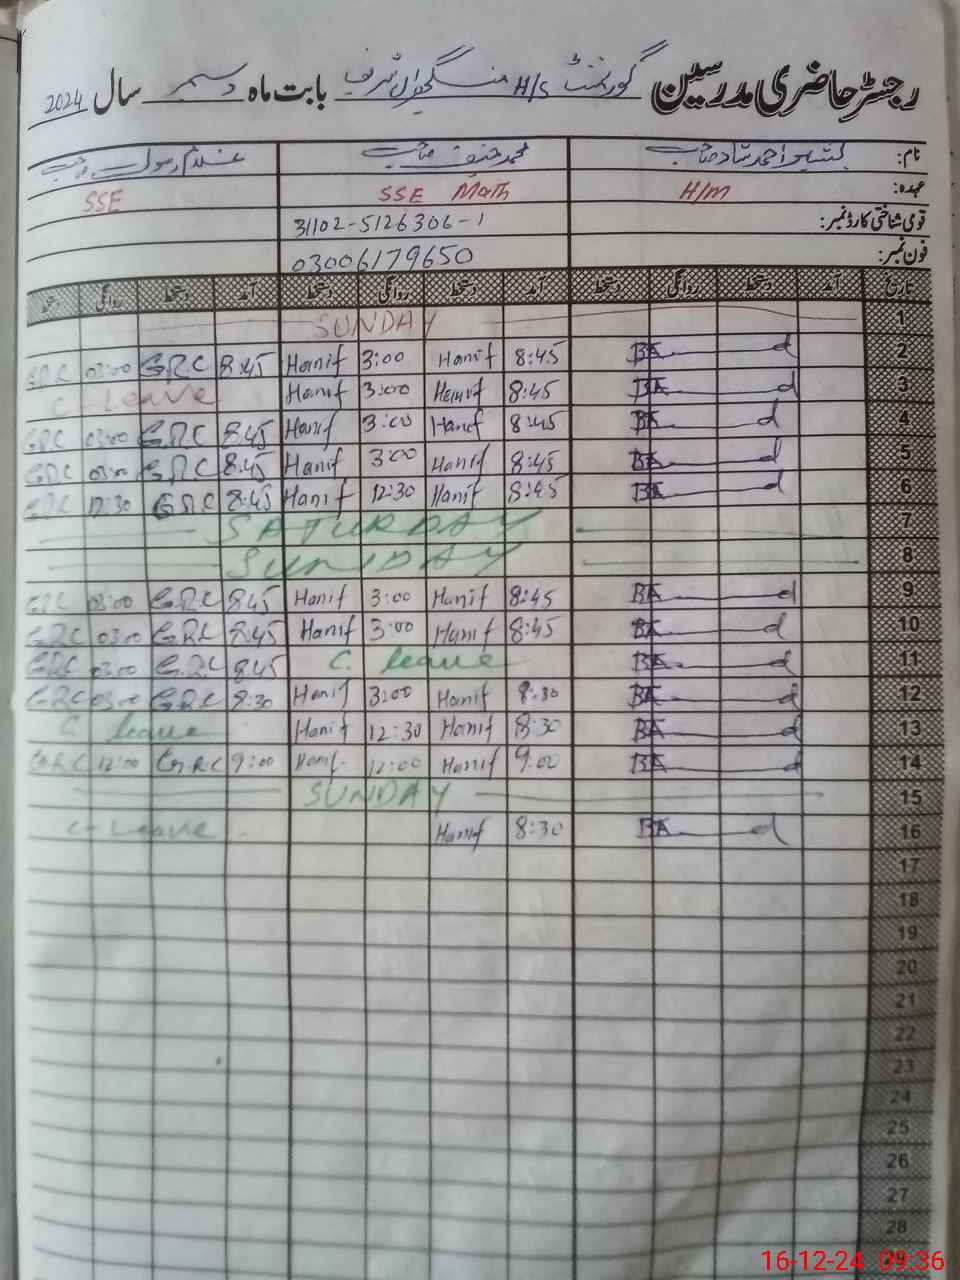 رجسٹر حاضری مدرسین گورنمنٹ H/S بابت ماہ دسمبر سال 2024
نام: بشیر احمد شاد صاحب محمد حنیف صاحب غلام رسول صاحب
عہدہ: H/M SSE Math SSE
قومی شناختی کارڈ نمبر: 31102-5126306-1
فون نمبر: 03006179650
تاریخ آمد دستخط روانگی دستخط آمد دستخط روانگی دستخط آمد دستخط روانگی دستخط
1 SUNDAY
2 8:45 Hanif 3:00 Hanif 8:45 GRC 03:00 GRC
3 8:45 Hanif 3:00 Hanif C. Leave
4 8:45 Hanif 3:00 Hanif 8:45 GRC 03:00 GRC
5 8:45 Hanif 3:00 Hanif 8:45 GRC 03:00 GRC
6 8:45 Hanif 12:30 Hanif 8:45 GRC 12:30 GRC
7 SATURDAY
8 SUNDAY
9 8:45 Hanif 3:00 Hanif 8:45 GRC 03:00 GRC
10 8:45 Hanif 3:00 Hanif 8:45 GRC 03:00 GRC
11 C. leave 8:45 GRC 03:00 GRC
12 8:30 Hanif 3:00 Hanif 8:30 GRC 03:00 GRC
13 8:30 Hanif 12:30 Hanif C. leave
14 9:00 Hanif 12:00 Hanif 9:00 GRC 12:00 GRC
15 SUNDAY
16 8:30 Hanif C. Leave
17
18
19
20
21
22
23
24
25
26
27
28
16-12-24 09:36